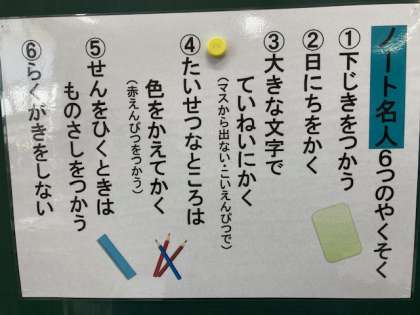 ノート名人6つのやくそく
①下じきをつかう
②日にちをかく
③大きな文字で
ていねいにかく
(マスから出ない・こいえんぴつで)
④たいせつなところは
色をかえてかく
(赤えんぴつをつかう)
⑤せんをひくときは
ものさしをつかう
⑥らくがきをしない